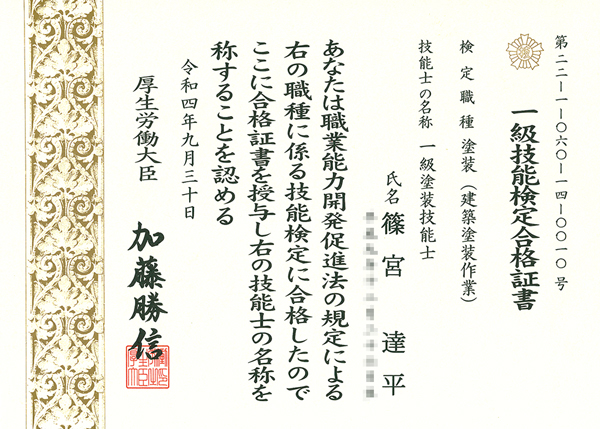 第二二－一－〇六〇－一四－〇〇一〇号
一級技能検定合格証書
検定職種 塗装（建築塗装作業）
技能士の名称 一級塗装技能士
氏名 篠宮 達平
あなたは職業能力開発促進法の規定による
右の職種に係る技能検定に合格したので
ここに合格証書を授与し右の技能士の名称を
称することを認める
令和四年九月三十日
厚生労働大臣
加藤勝信